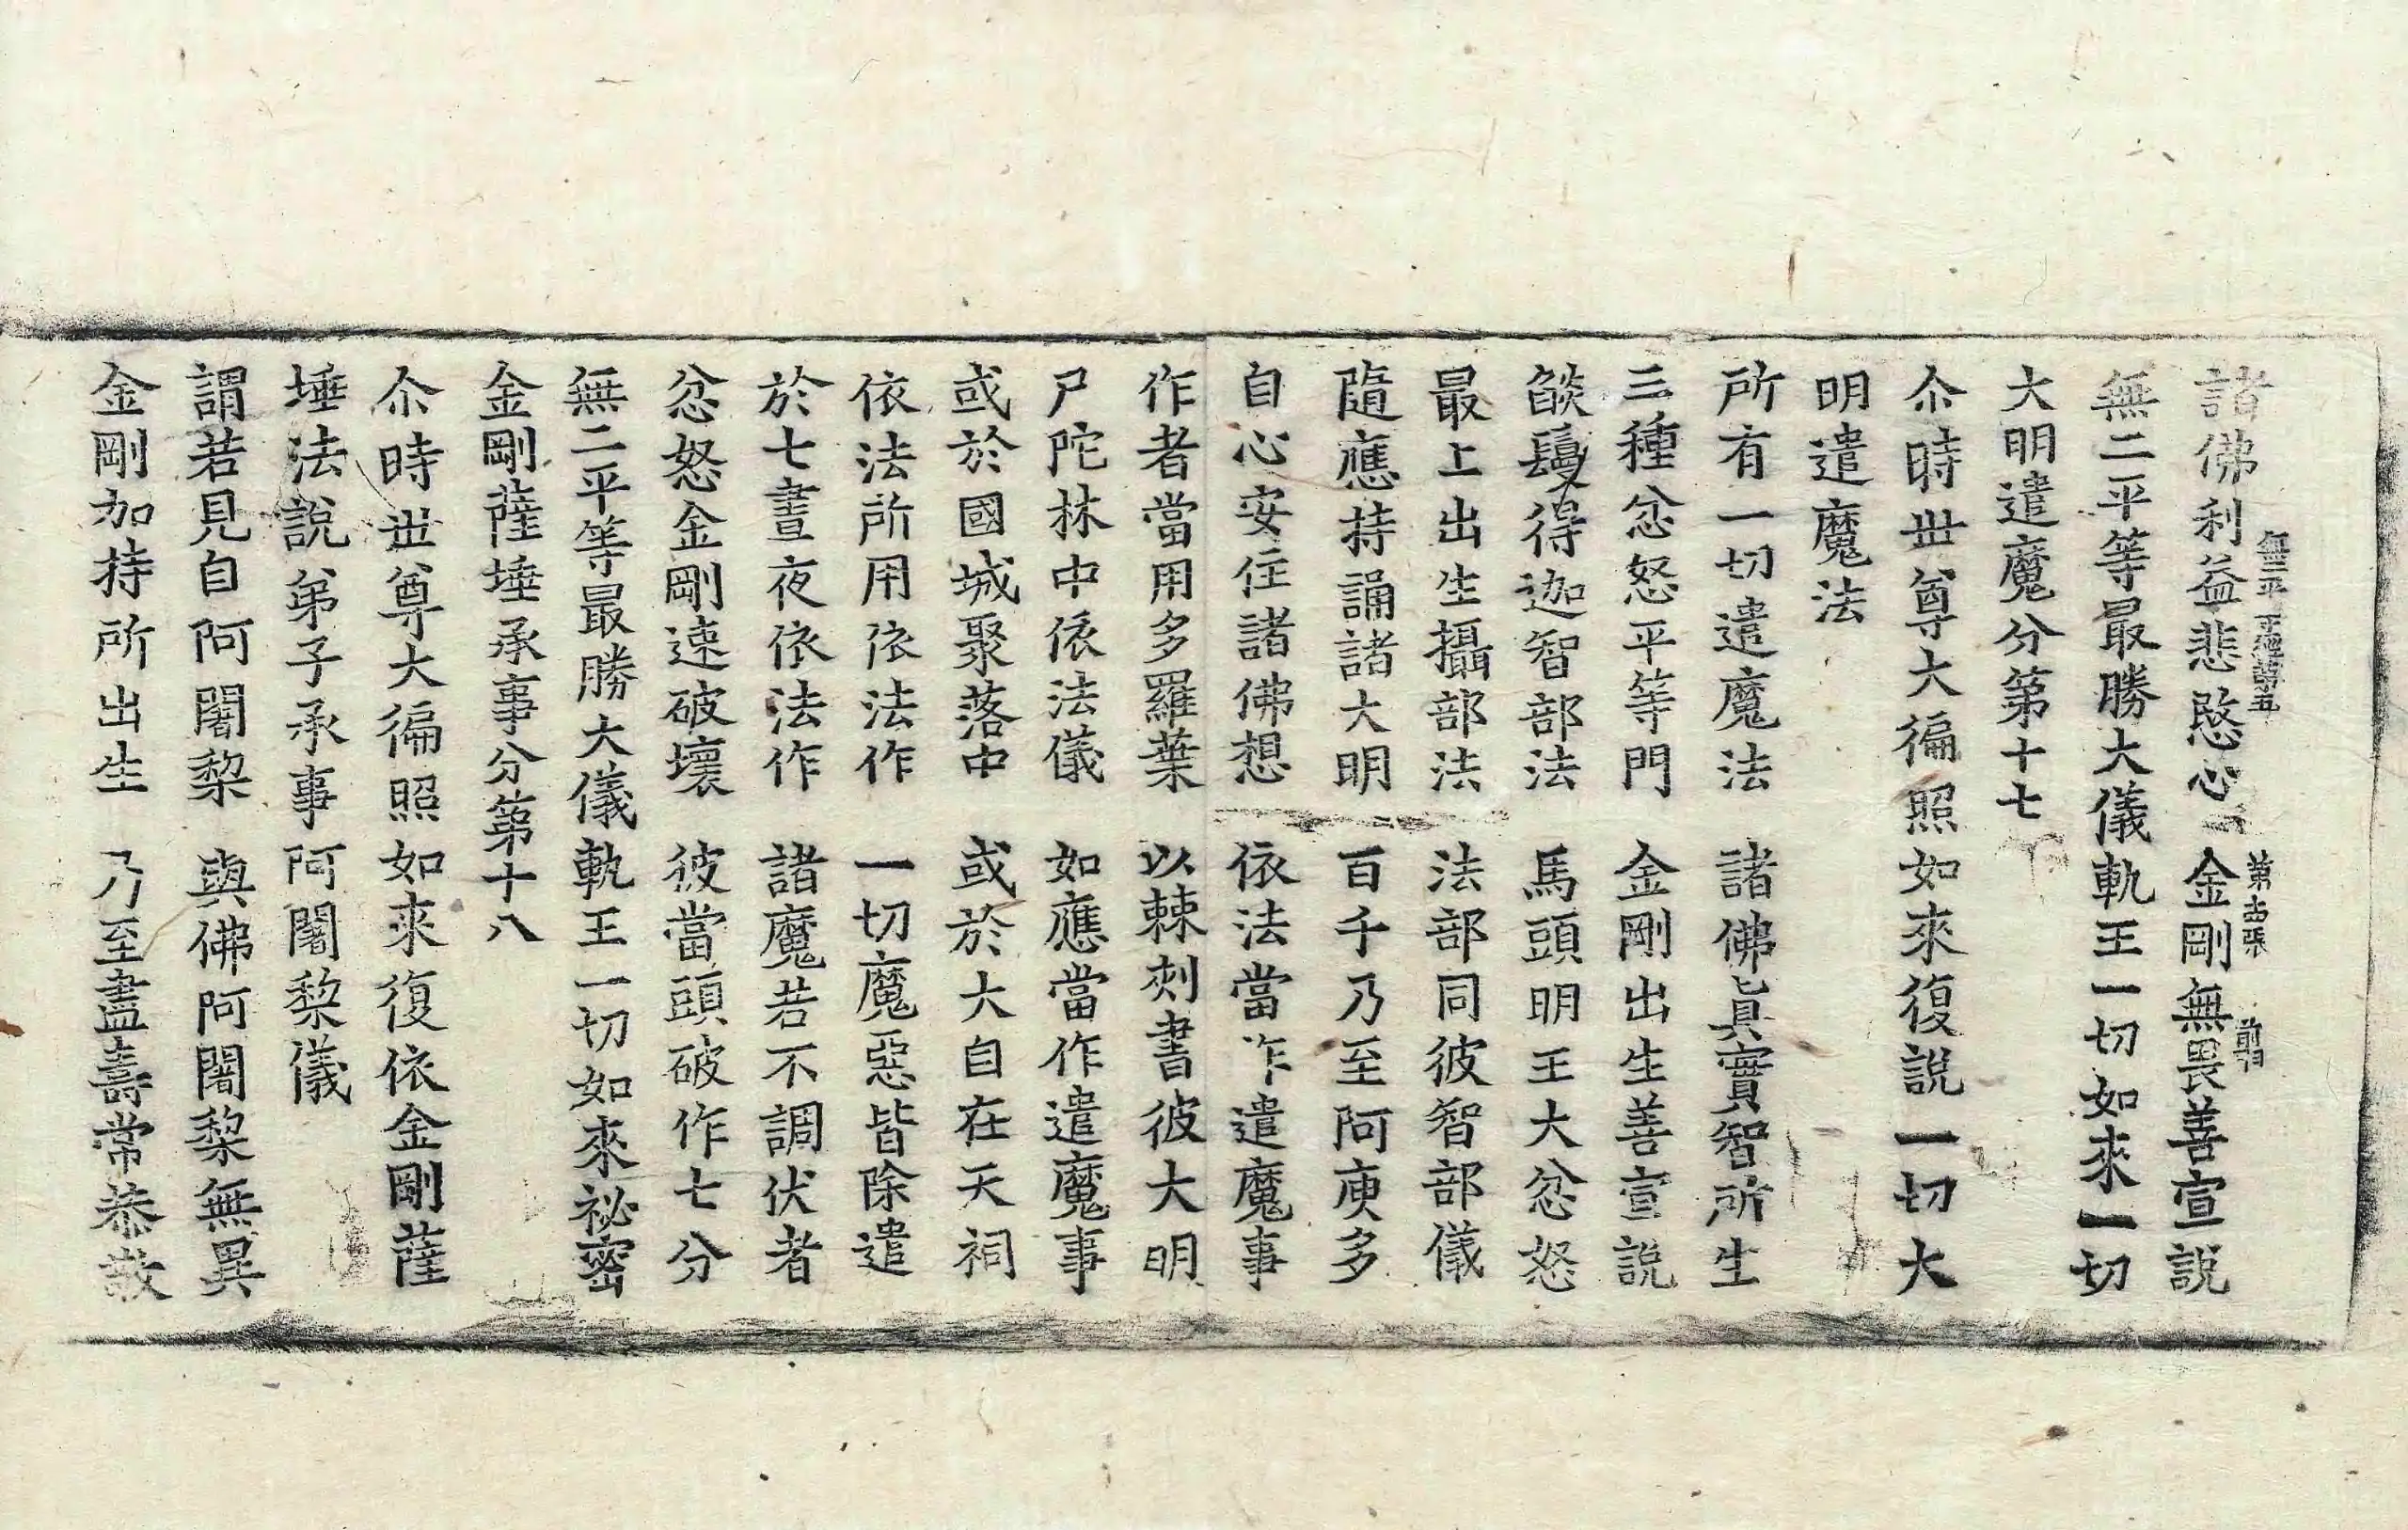 諸佛利益悲愍心　金剛無畏善宣說
無二平　第五　第十四張　前
無二平等最勝大儀軌王一切如來一切
大明遣魔分第十七
尒時世尊大徧照如來復說一切大
明遣魔法
所有一切遣魔法　諸佛眞實智所生
三種忿怒平等門　金剛出生善宣說
燄鬘得迦智部法　馬頭明王大忿怒
最上出生攝部法　法部同彼智部儀
隨應持誦諸大明　百千乃至阿庾多
自心安住諸佛想　依法當作遣魔事
作者當用多羅葉　以棘刺書彼大明
尸陀林中依法儀　如應當作遣魔事
或於國城聚落中　或於大自在天祠
依法所用依法作　一切魔惡皆除遣
於七晝夜依法作　諸魔若不調伏者
忿怒金剛速破壞　彼當頭破作七分
無二平等最勝大儀軌王一切如來祕密
金剛薩埵承事分第十八
尒時世尊大徧照如來復依金剛薩
埵法說弟子承事阿闍梨儀
謂若見自阿闍梨　與佛阿闍梨無異
金剛加持所出生　乃至盡壽常恭敬